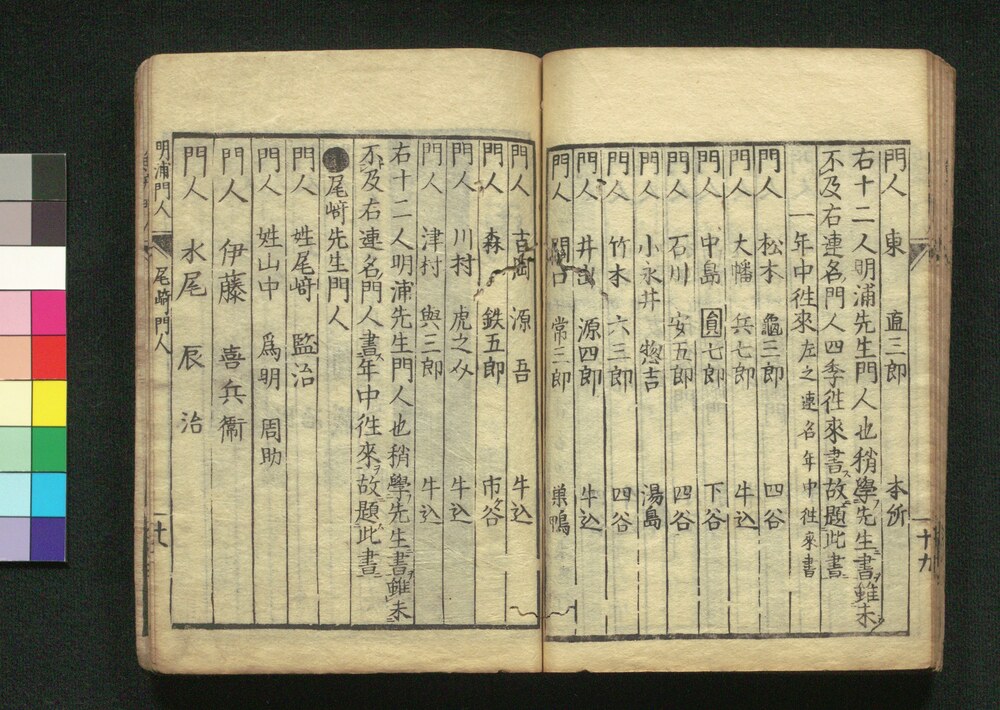 門人 東 直三郎 本所
右十二人明浦先生門人也稍學先生書雖未
不及右連名門人四季徃來書故題此書
一年中徃來 左之連名年中徃來書
門人 松本 龜三郎 四谷
門人 大幡 兵七郎 牛込
門人 中島 圓七郎 下谷
門人 石川 安五郎 四谷
門人 小永井 惣吉 湯島
門人 竹本 六三郎 四谷
門人 井出 源四郎 牛込
門人 關口 常三郎 巣鴨
十九
門人 吉岡 源吾 牛込
門人 森 鉄五郎 市谷
門人 川村 虎之助 牛込
門人 津村 與三郎 牛込
右十二人明浦先生門人也稍學先生書雖未
不及右連名門人書年中徃來故題此書
尾﨑先生門人
門人 姓尾﨑 監治
門人 姓山中 爲明 周助
門人 伊藤 喜兵衞
門人 水尾 辰治
明浦門人 尾﨑門人